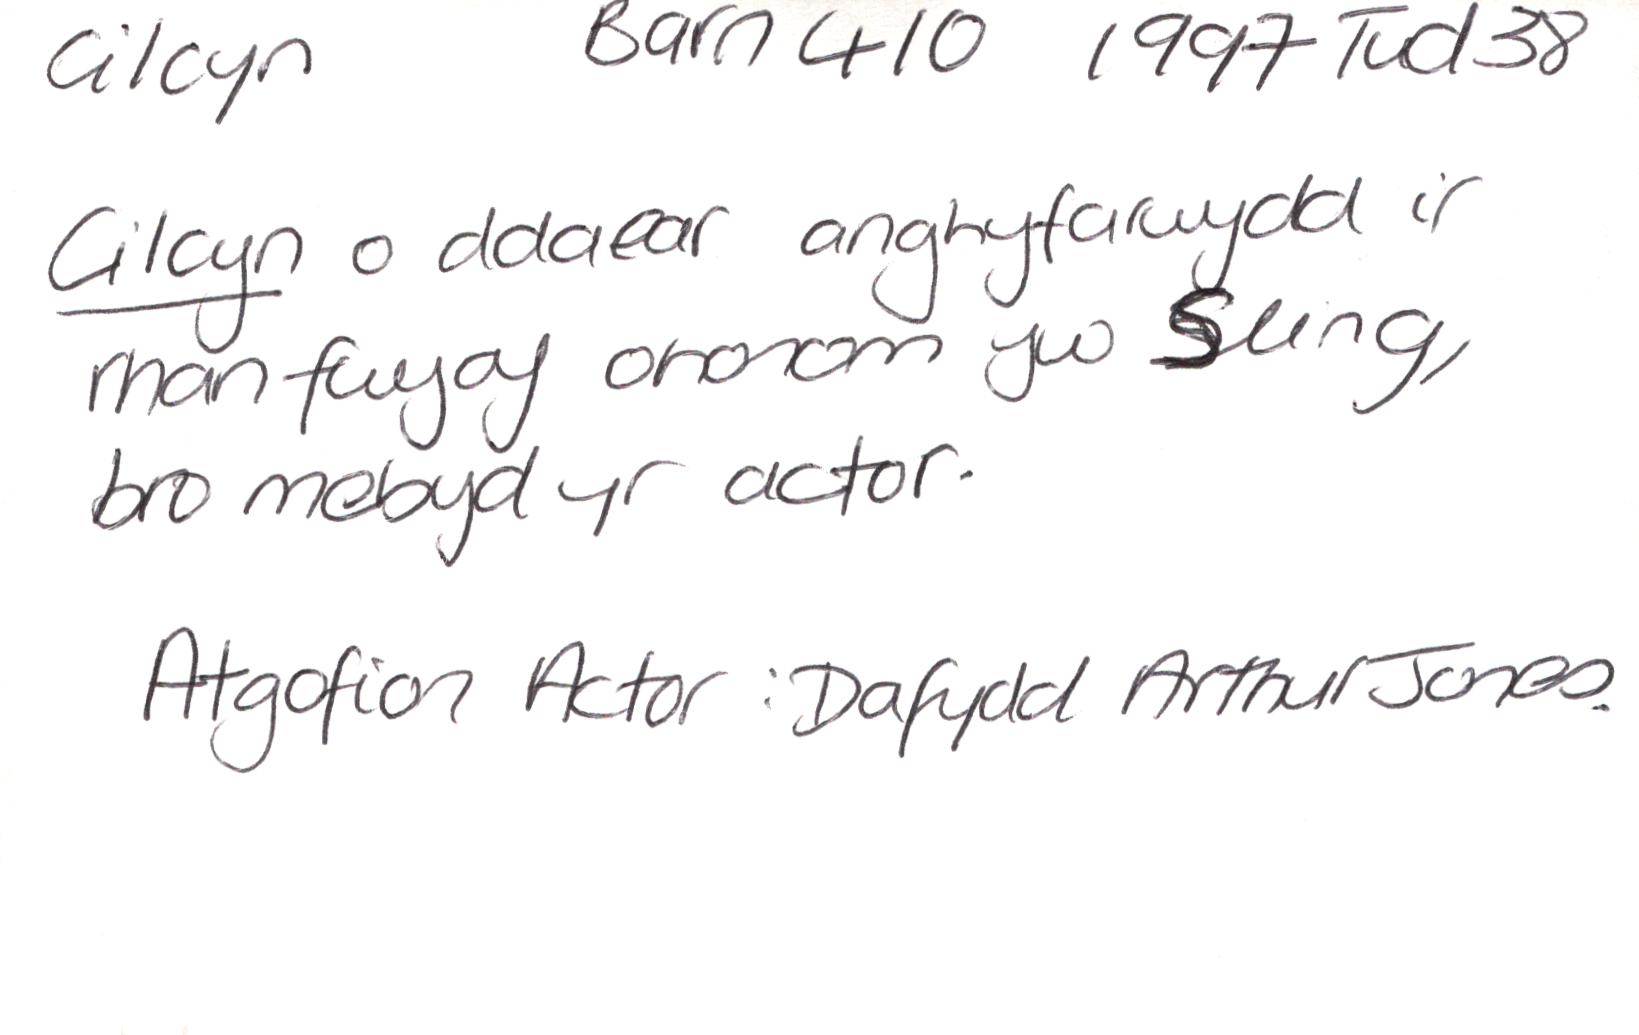 Cilcyn Barn 410 1997 Tud 38
Cilcyn o ddaear anghyfarwydd ir
rhan fwyaf ohonom yw Sling,
bro mebyd yr actor.
Atgofion Actor : Dafydd Arthur Jones.